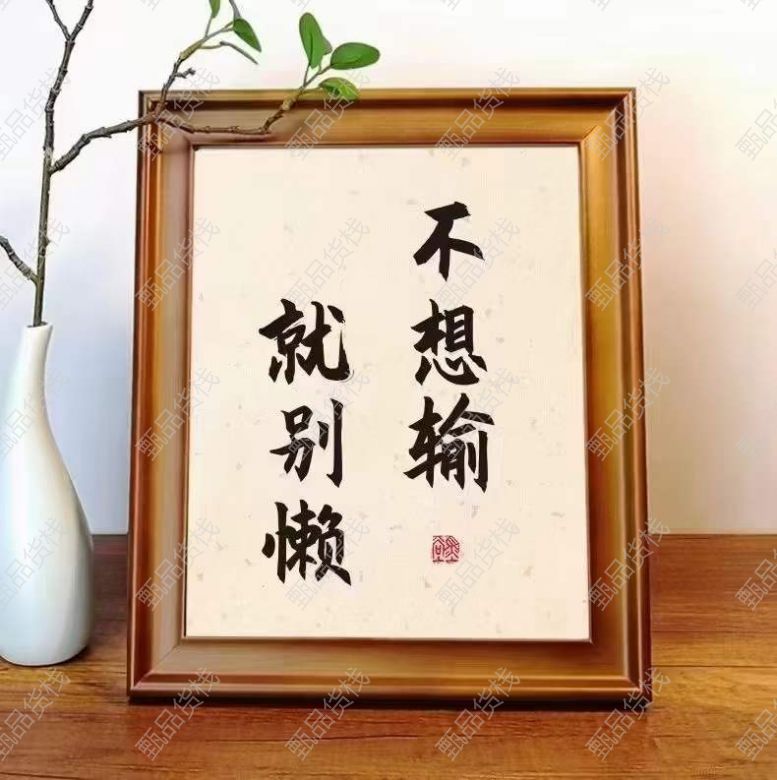 不想输
就别懒
甄品货栈